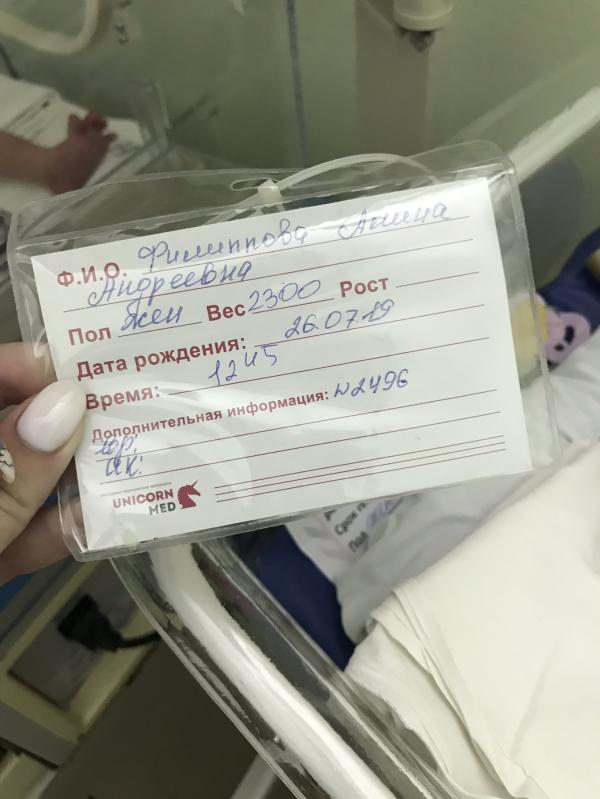 Ф.И.О. Филиппова Алина
Андреевна
Пол жен Вес 2300 Рост
Дата рождения: 26.07.19
Время: 1245
Дополнительная информация: N2496
UNICORN
MED
Срок
Пол